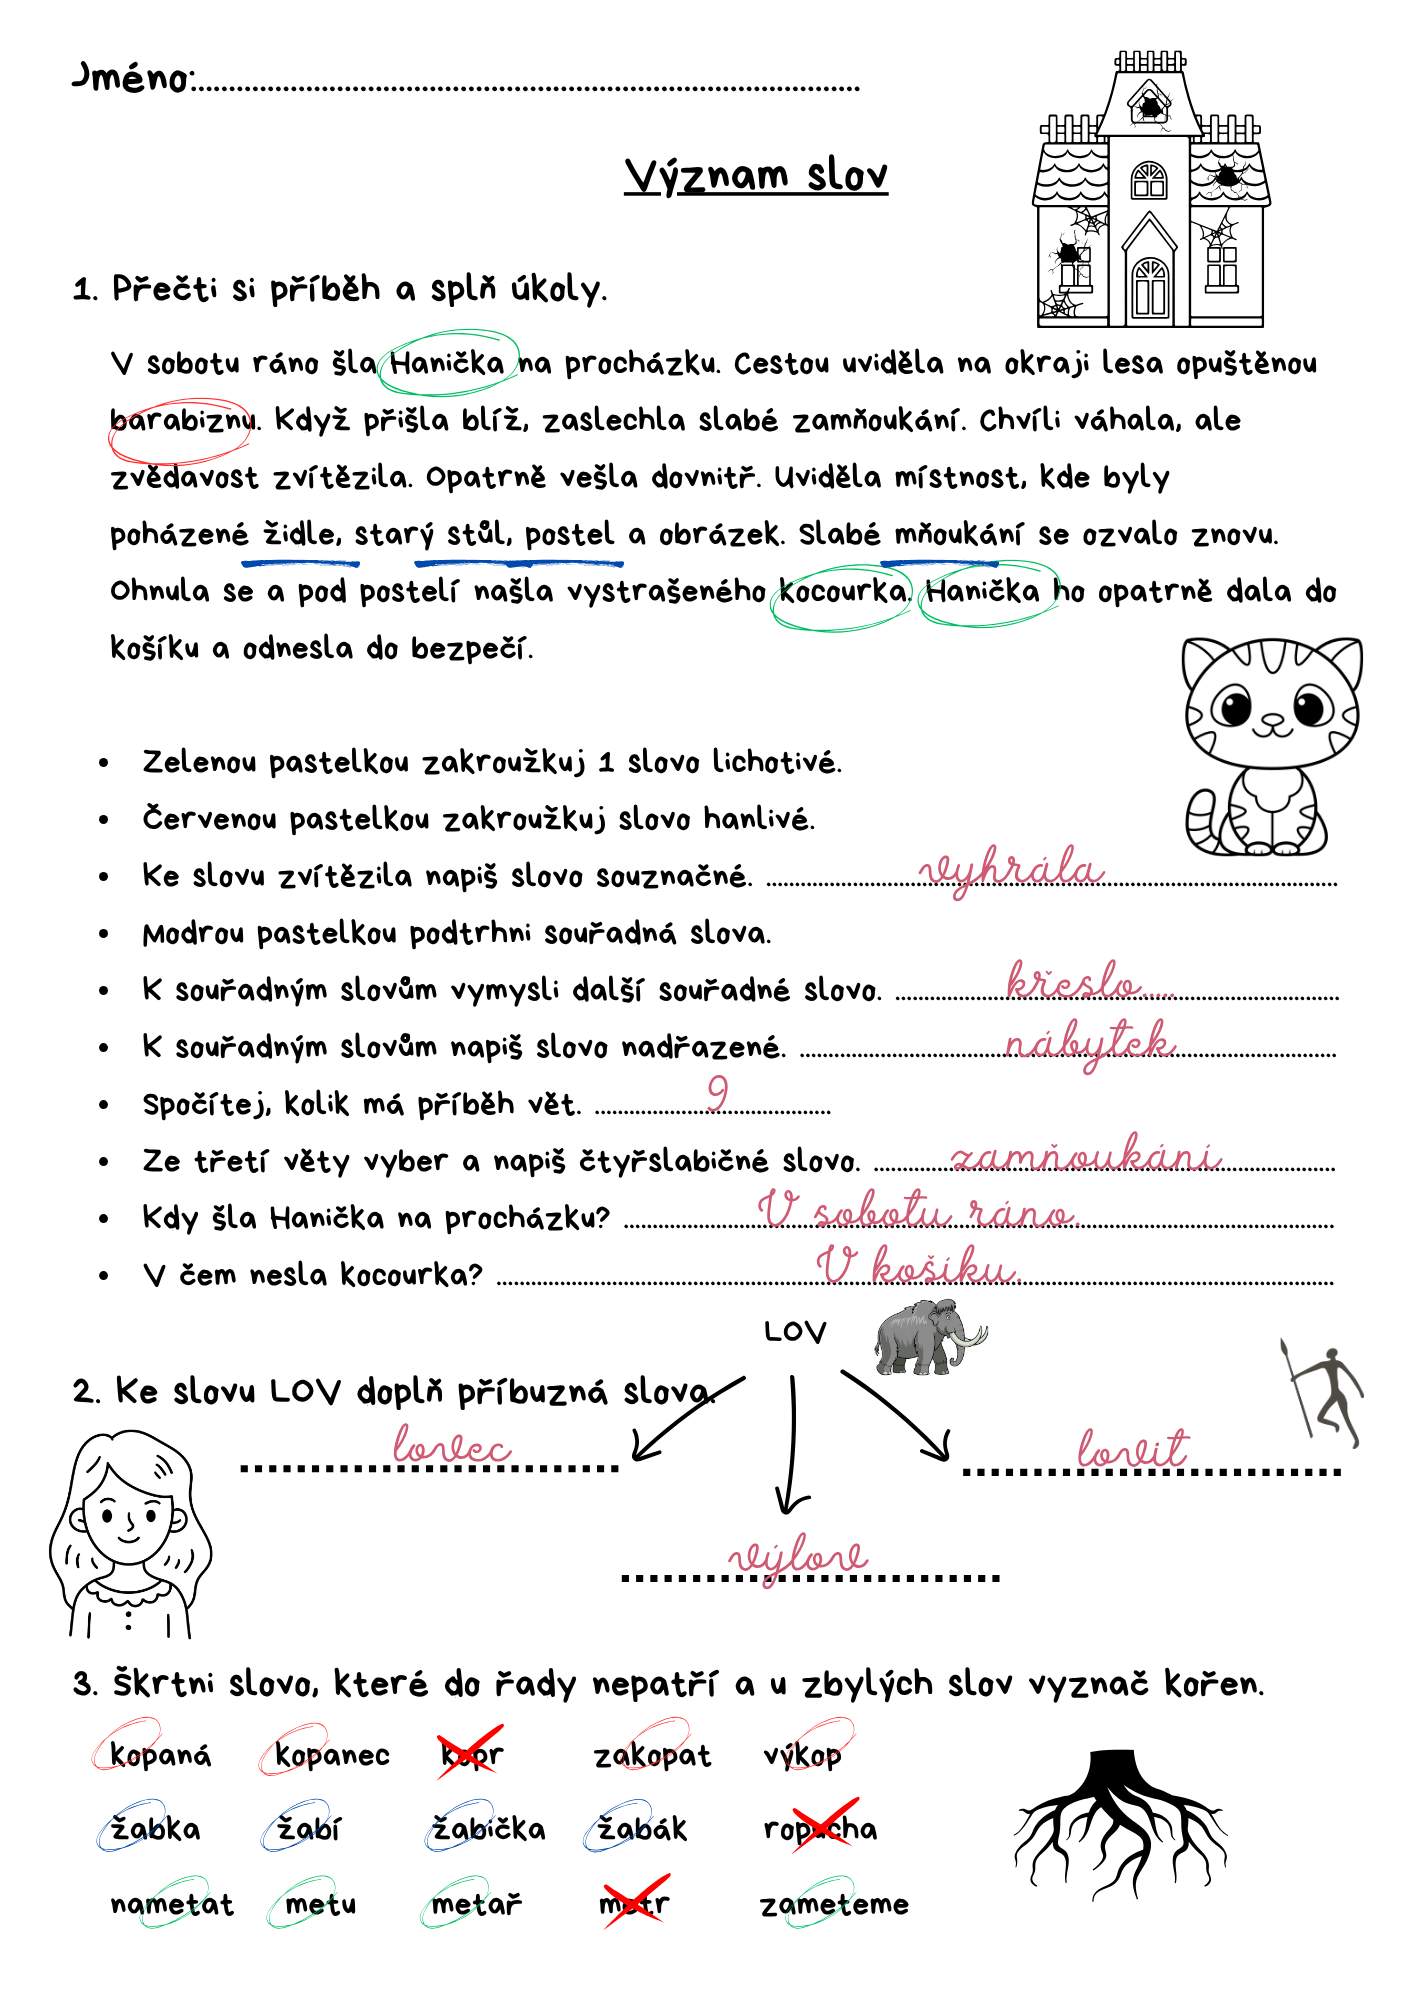 Jméno:....................................................................................
Význam slov
1. Přečti si příběh a splň úkoly.
V sobotu ráno šla Hanička na procházku. Cestou uviděla na okraji lesa opuštěnou
barabiznu. Když přišla blíž, zaslechla slabé zamňoukání. Chvíli váhala, ale
zvědavost zvítězila. Opatrně vešla dovnitř. Uviděla místnost, kde byly
poházené židle, starý stůl, postel a obrázek. Slabé mňoukání se ozvalo znovu.
Ohnula se a pod postelí našla vystrašeného kocourka. Hanička ho opatrně dala do
košíku a odnesla do bezpečí.
• Zelenou pastelkou zakroužkuj 1 slovo lichotivé.
• Červenou pastelkou zakroužkuj slovo hanlivé.
• Ke slovu zvítězila napiš slovo souznačné. vyhrála
• Modrou pastelkou podtrhni souřadná slova.
• K souřadným slovům vymysli další souřadné slovo. křeslo.....
• K souřadným slovům napiš slovo nadřazené. nábytek
• Spočítej, kolik má příběh vět. 9
• Ze třetí věty vyber a napiš čtyřslabičné slovo. zamňoukání
• Kdy šla Hanička na procházku? V sobotu ráno.
• V čem nesla kocourka? V košíku.
LOV
2. Ke slovu LOV doplň příbuzná slova.
lovec lovit
výlov
3. Škrtni slovo, které do řady nepatří a u zbylých slov vyznač kořen.
kopaná kopanec kopr zakopat výkop
žabka žabí žabička žabák ropucha
nametat metu metař metr zameteme